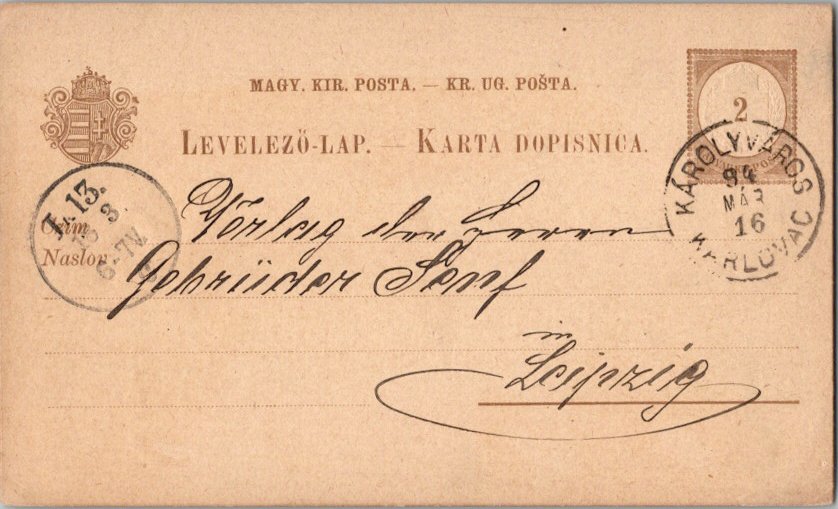 MAGY. KIR. POSTA. — KR. UG. POŠTA.
LEVELEZŐ-LAP. — KARTA DOPISNICA.
2
KÁROLYVÁROS
94
MÁR
16
KARLOVAC
L. 13.
8
6-7V.
Czim
Naslov
Verlag der Herren
Gebrüder Senf
in
Leipzig